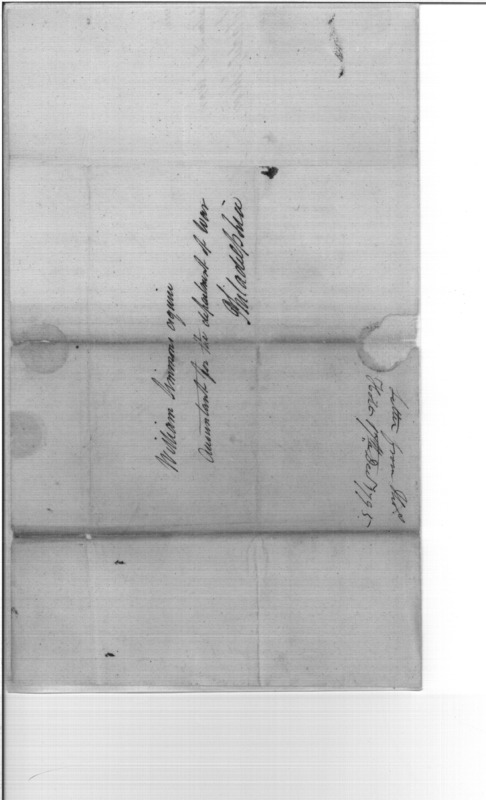 William Simmons esquire
Accountant for the department of War
Philadelphia
Letter from
1795